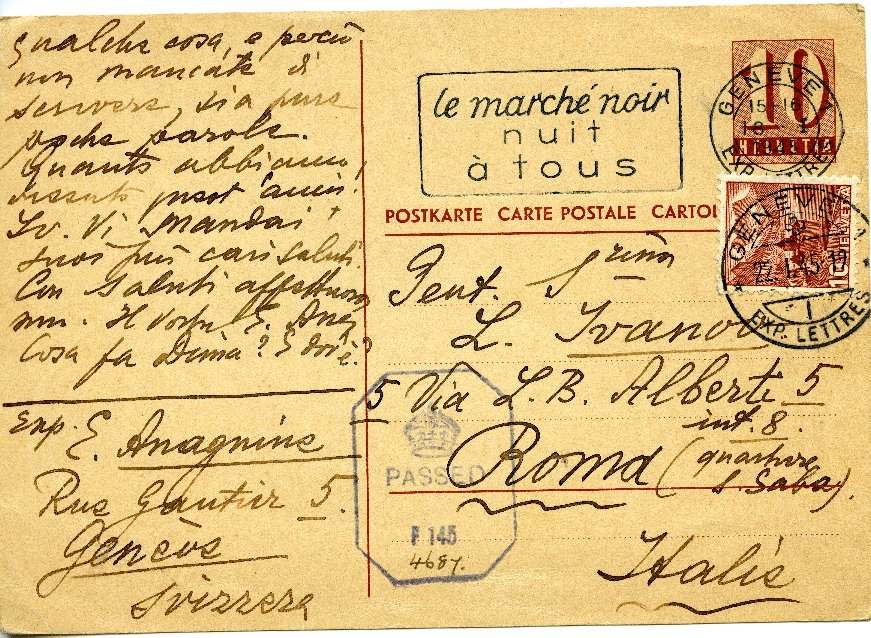 qualche cosa, e perciò
non mancate di
scrivere, sia pure
poche parole.
Quanto abbiamo
vissuto questi anni!
Iv. Vi manda i
suoi più cari saluti.
Con saluti affettuosi
Il Vostro E. Anag
Cosa fa Dima? E dov'è?
Exp. E. Anagnine
Rue Gautier 5.
Genève
Svizzera
le marché noir
nuit
à tous
10
HELVETIA
GENÈVE 1
15-16
EXP. LETTRES
POSTKARTE CARTE POSTALE CARTOL
GENÈVE 1
22.I.45-12
EXP. LETTRES
Gent. Srina
L. Ivanov
5 Via L.B. Alberti 5
int. 8.
Roma (quartiere
S. Saba).
Italie
PASSED
F 145
4687.